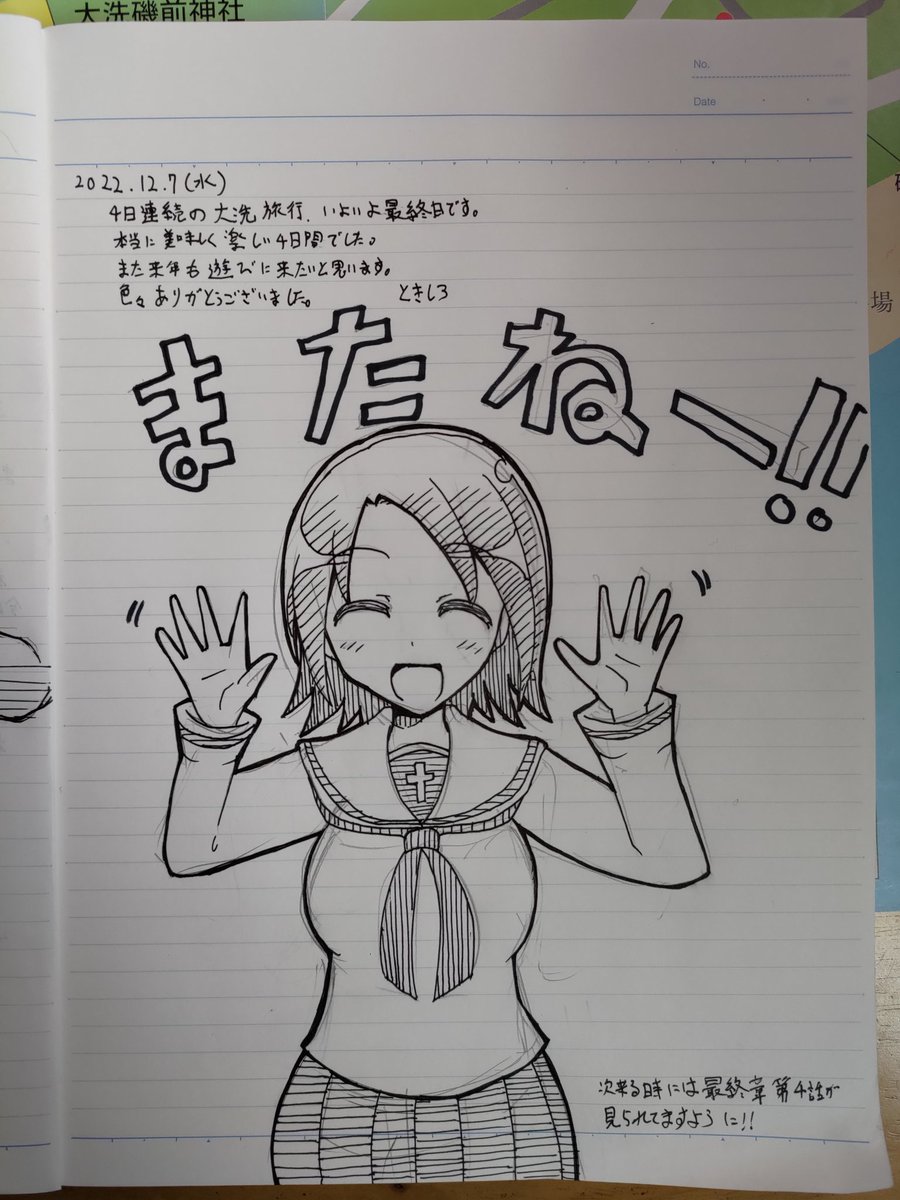 大洗磯前神社
No.
Date
2022.12.7(水)
4日連続の大洗旅行、いよいよ最終日です。
本当に美味しく楽しい4日間でした。
また来年も遊びに来たいと思います。
色々ありがとうございました。 ときしろ
場
またねー!!
次来る時には最終章第4話が
見られてますように!!